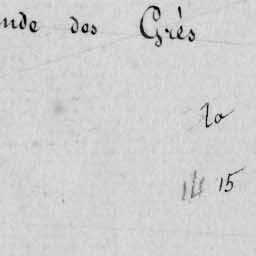 nde des Grès
20
14 15